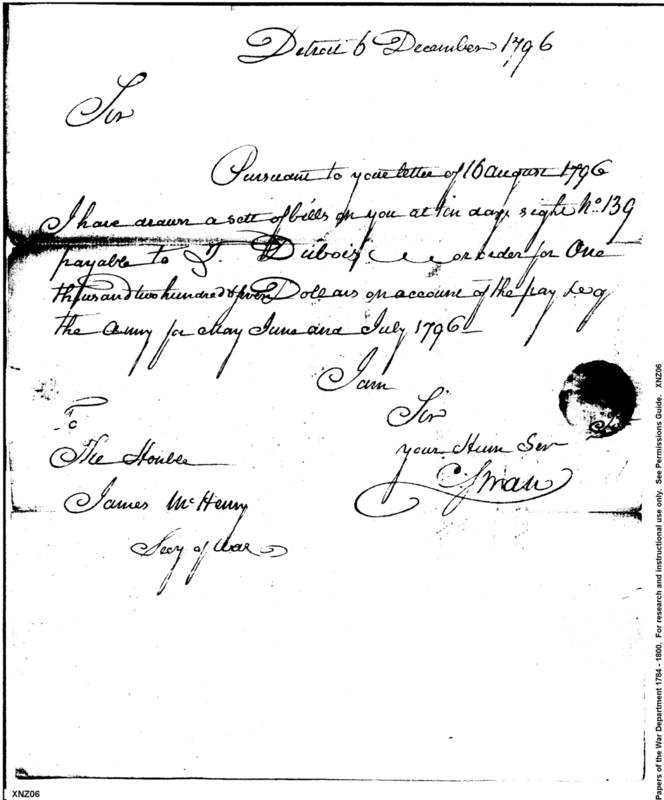 Detroit 6 December 1796
Sir
Pursuant to your letter of 16 August 1796
I have drawn a sett of bills on you at ten days sight No. 139
payable to J. Dubois or order for One
thousand two hundred & seven Dollars on account of the pay &c of
the Army for May June and July 1796
I am
Sir
your Hum Ser
C Swan
To
The Honble
James McHenry
Secy of War
Papers of the War Department 1784 - 1800. For research and instructional use only. See Permissions Guide. XNZ06
XNZ06